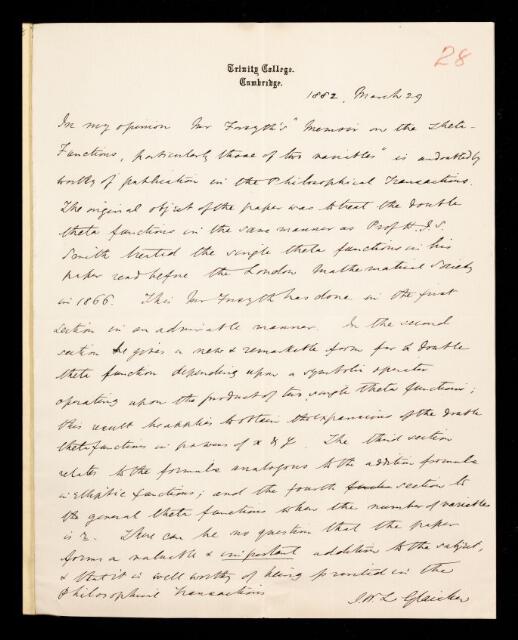 28
Trinity College.
Cambridge.
1882, March 29
In my opinion Mr Forsyth's "Memoir on the Theta-
Functions, particularly those of two variables" is undoubtedly
worthy of publication in the Philosophical Transactions.
The original object of the paper was to treat the double
theta functions in the same manner as Prof H. J. S.
Smith treated the single theta functions in his
paper read before the London Mathematical Society
in 1866. This Mr Forsyth has done in the first
section in an admirable manner. In the second
section he gives a new & remarkable form for a double
theta function depending upon a symbolic operator
operating upon the product of two single theta functions;
this result he applies to obtain the expansions of the double
theta functions in powers of x & y. The third section
relates to the formulæ analogous to the addition formula
in elliptic functions; and the fourth section to
the general theta functions when the number of variables
is r. There can be no question that the paper
forms a valuable & important addition to the subject,
& that it is well worthy of being printed in the
Philosophical Transactions
J. W. L. Glaisher